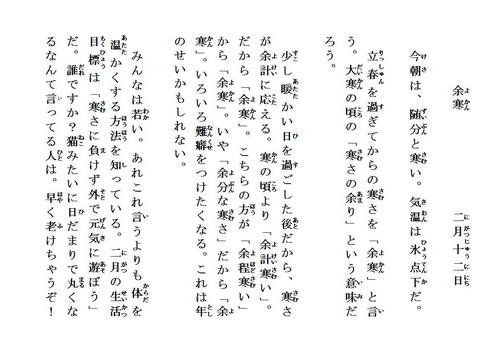 余寒　二月十二日
今朝は、随分と寒い。気温は氷点下だ。
立春を過ぎてからの寒さを「余寒」と言
う。大寒の頃の「寒さの余り」という意味だ
ろう。
少し暖かい日を過ごした後だから、寒さ
が余計に応える。寒の頃より「余計寒い」。
だから「余寒」。こちらの方が「余程寒い」
から「余寒」。いや「余分な寒さ」だから「余
寒」。いろいろ難癖をつけたくなる。これは年
のせいかもしれない。
みんなは若い。あれこれ言うよりも体を
温かくする方法を知っている。二月の生活
目標は「寒さに負けず外で元気に遊ぼう」
だ。誰ですか？猫みたいに日だまりで丸くな
るなんて言ってる人は。早く老けちゃうぞ！